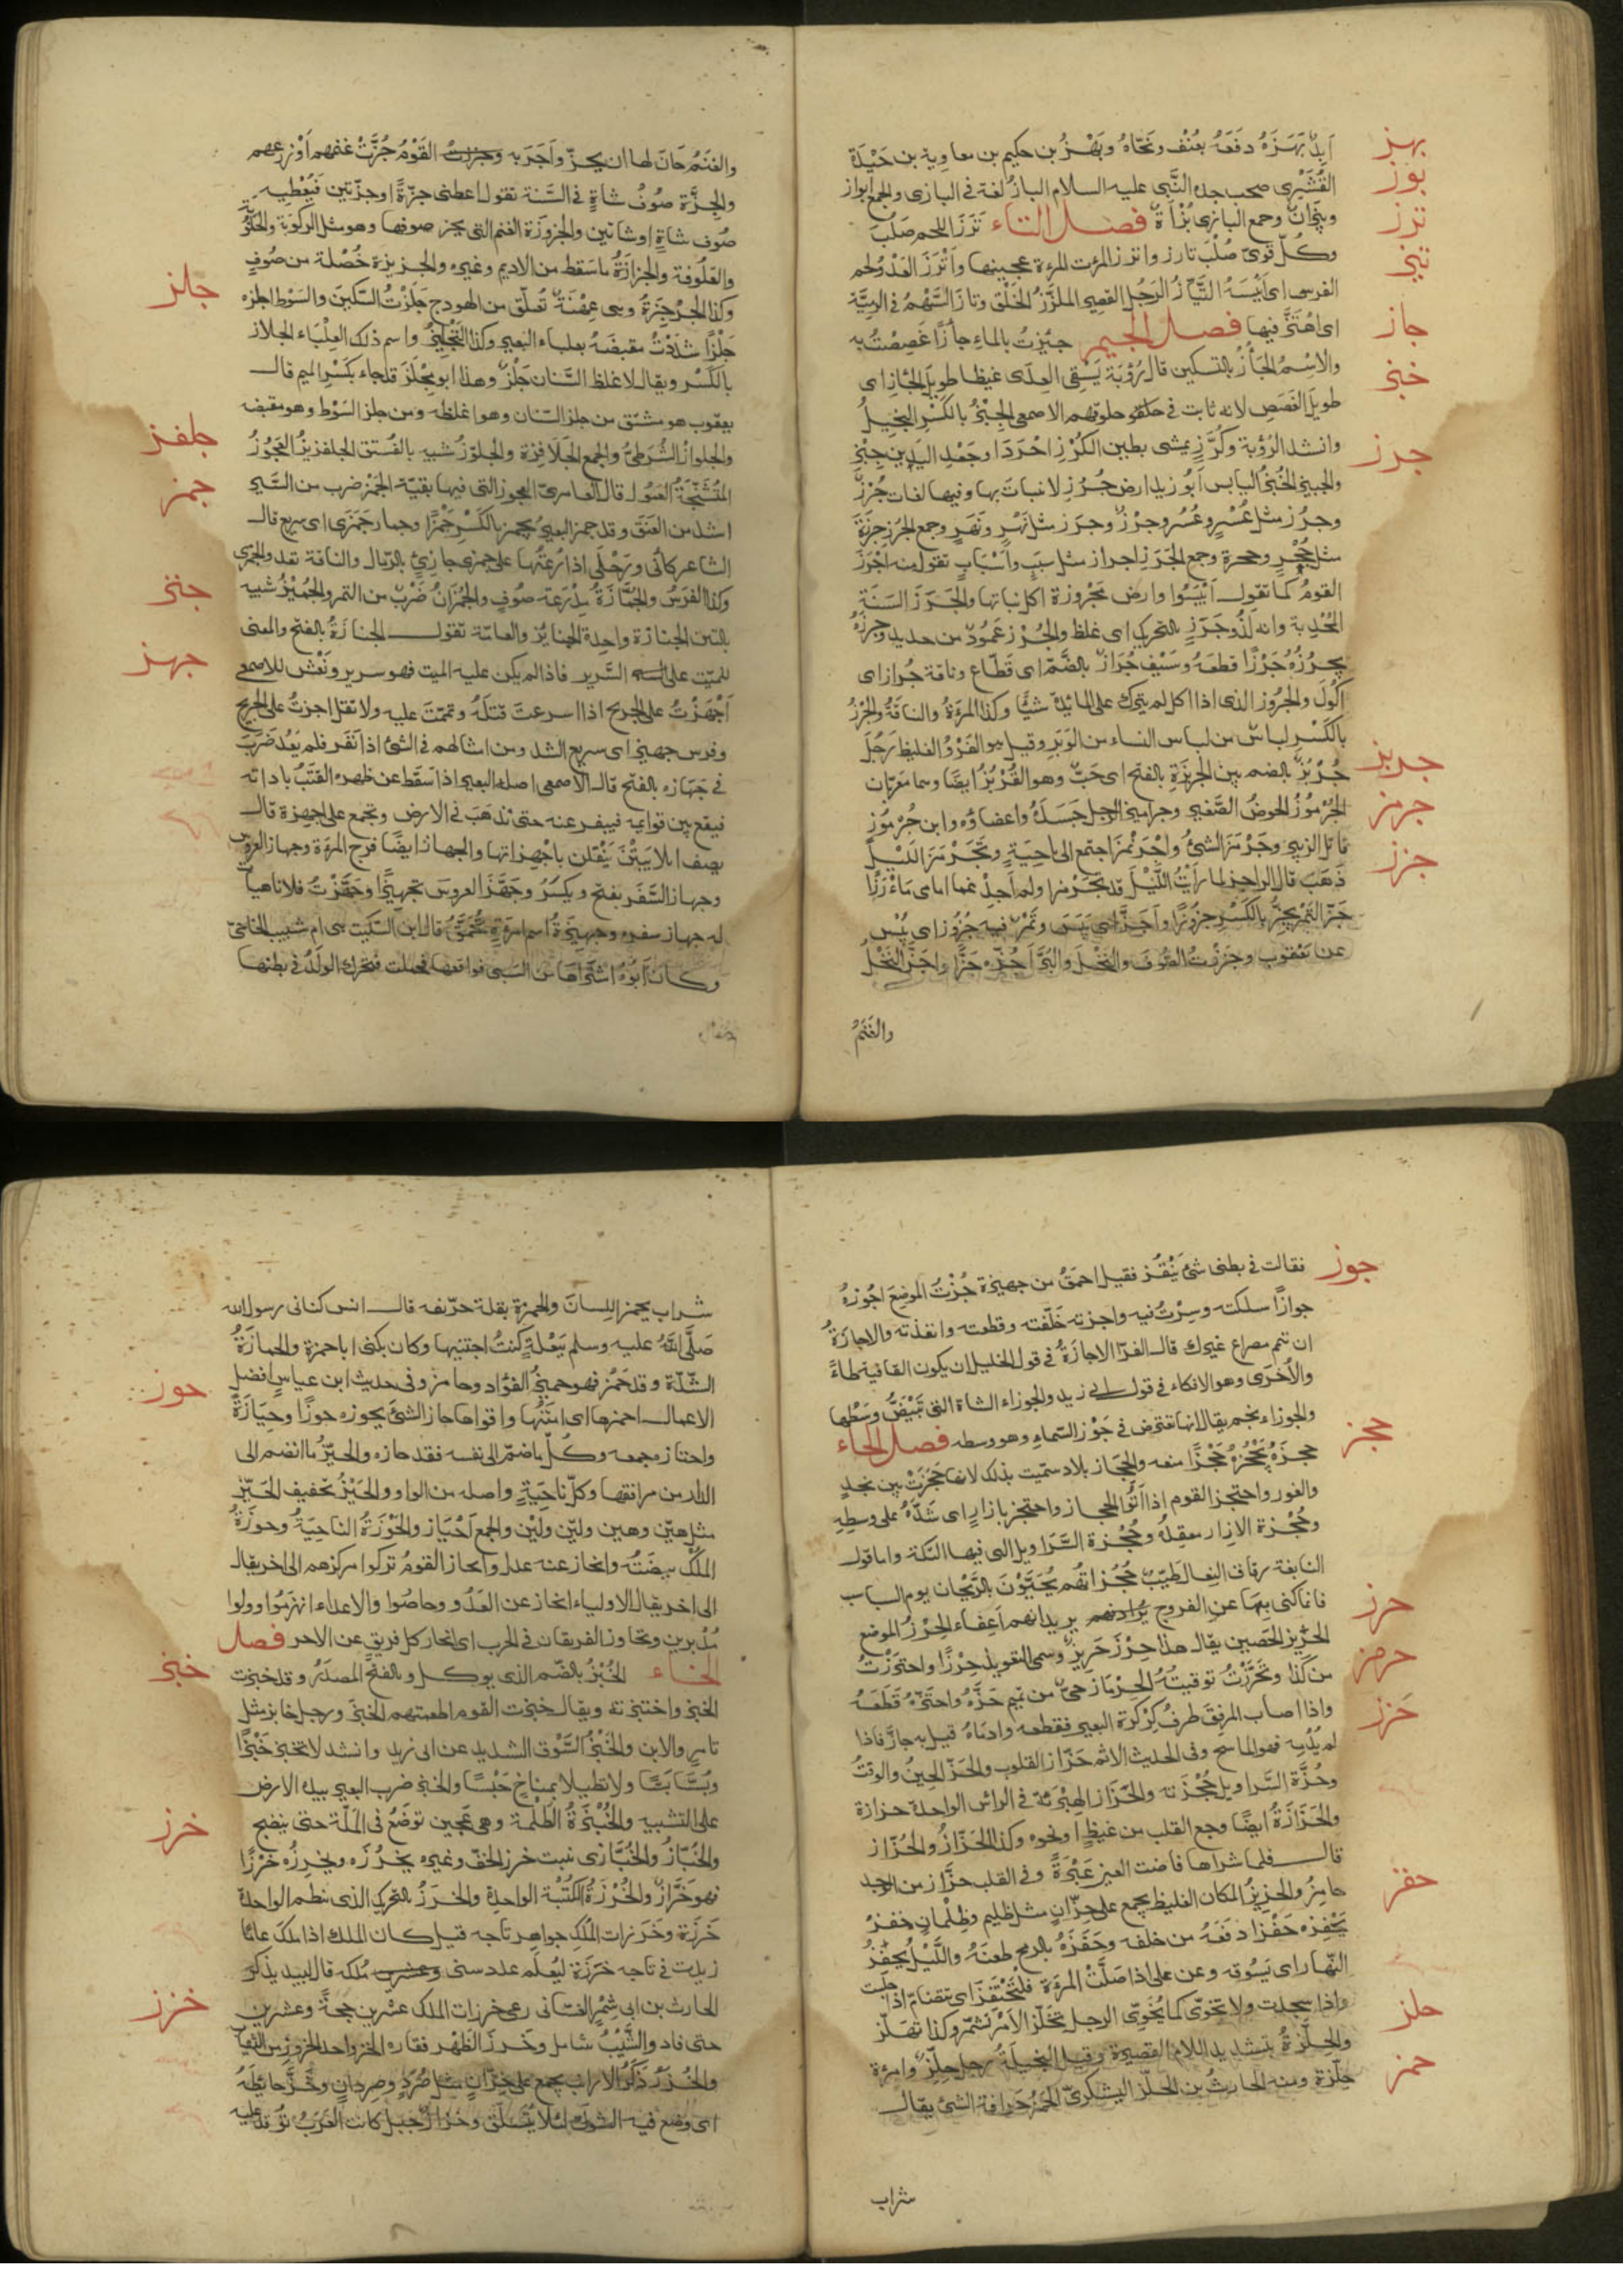 بهز
بوز
ترز
تيز
جاز
خبز
جرز
جربز
جرمز
جزز
أبد بهزه دفعه بعنف ونحاه وبهز بن حكيم بن معاوية بن حيدة
القشيرى صحب جده النبى عليه السلام الباز لغة فى البازى والجمع ابواز
وبيزان وجمع البازى بزاة فصل التاء ترز اللحم صلب
وكل قوى صلب تارز واترزت المرءة عجينها واترز العدو لحم
الفرس اى ايبسه التياز الرجل القصير الملزز الخلق وتاز السهم فى الرمية
اى اهتز فيها فصل الجيم جئزت بالماء جأزا غصصت به
والاسم الجأز بالتسكين قال رؤبة يسقى العدى غيظا طويل الجأز اى
طويل الغصص لانه ثابت فى حلوقهم الاصمعى الجبز بالكسر البخيل
وانشد لرؤبة وكرز يمشى بطين الكرز احردا وجعد اليدين جبز
والجبيز الخبز اليابس ابو زيد ارض جرز لا نبات بها وفيها لغات جرز
وجرز مثل عسر وعسر وجرز وجرز مثل نهر ونهر وجمع الجرز جرزة
مثل جحر وجحرة وجمع الجرز اجراز مثل سبب واسباب تقول منه اجرز
القوم كما تقول ايبسوا وارض مجروزة اكل نباتها والجرز السنة
الجدبة وانه لذو جرز بالتحريك اى غلظ والجرز عمود من حديد وجرزه
يجرزه جرزا قطعه وسيف جراز بالضم اى قطاع وناقة جراز اى
اكول والجروز الذى اذا اكل لم يترك على المائدة شيئا وكذا المرءة والناقة والجرز
بالكسر لباس من لباس النساء من الوبر وقيل هو الفرو الغليظ رجل
جربز بالضم بين الجربزة بالفتح اى خب وهو القربز ايضا وهما معربان
الجرموز الحوض الصغير وجراميز الرجل جسده واعضاؤه وابن جرموز
قاتل الزبير وجرمز الشئ واجرنمز اجتمع الى ناحية وتجرمز الليل
ذهب قال الراجز لما رأيت الليل قد تجرمزا ولم اجد عما امامى مأرزا
جز التمر يجز بالكسر جزوزا واجز اى يبس وتمر فيه جزوز اى يبس
عن يعقوب وجززت الصوف والنخل والبر اجزه جزا واجز النخل
والغنم
والغنم حان لها ان يجز واجز به القوم جزت غنمهم او زرعهم
والجزة صوف شاة فى السنة تقول اعطنى جزة او جزتين فيعطيه
صوف شاة او شاتين والجزوزة الغنم التى يجز صوفها وهو مثل الركوبة والحلوبة
والعلوفة والجزازة ما سقط من الاديم وغيره والجزيزة خصلة من صوف
وكذا الجزجزة وهى عهنة تعلق من الهودج جلزت السكين والسوط اجلزه
جلزا شددت مقبضه بعلباء البعير وكذا التجليز واسم ذلك العلباء الجلاز
بالكسر ويقال لاغلظ السنان جلز وهذا ابو مجلز قد جاء بكسر الميم قال
يعقوب هو مشتق من جلز السنان وهو اغلظه ومن جلز السوط وهو مقبضه
والجلواز الشرطى والجمع الجلاوزة والجلوز شبيه بالفستق الجلفزيز العجوز
المتشنجة العمول قال العامرى العجوز التى فيها بقية الجمز ضرب من السير
اشد من العنق وقد جمز البعير يجمز بالكسر جمزا وحمار جمزى اى سريع قال
الشاعر كأنى ورحلى اذا رعتها على جمزى جازئ بالرمال والناقة تعدو الجمزى
وكذا الفرس والجمازة مدرعة صوف والجمزان ضرب من التمر والجميز شبيه
بالتين الجنازة واحدة الجنائز والعامة تقول الجنازة بالفتح والمعنى
للميت على السرير فاذا لم يكن عليه الميت فهو سرير ونعش للاصمعى
اجهزت على الجريح اذا اسرعت قتله وتممت عليه ولا تقل اجزت على الجريح
وفرس جهيز اى سريع الشد ومن امثالهم فى الشئ اذا نفر فلم يعد ضرب
فى جهازه بالفتح قال الاصمعى اصله البعير اذا سقط عن ظهره القتب باداته
فيقع بين قوائمه فينفر عنه حتى يذهب فى الارض ويجمع على اجهزة قال
يصف ابلا يبتن ينقلن باجهزاتها والجهاز ايضا فرج المرءة وجهاز العروس
وجهاز السفر بفتح ويكسر وجهز العروس تجهيزا وجهزت فلانا هيأت
له جهاز سفره وجهيزة اسم امرءة تحمق قال ابن السكيت هى ام شبيب الخارجى
وكان ابوه اشتراها من السبى فواقعها فحملت فتحرك الولد فى بطنها
فقالت
جلز
جلفز
جمز
جنز
جهز
جوز
حجز
حرز
حرمز
حزز
حفز
حلز
حمز
فقالت فى بطنى شئ ينقز فقيل احمق من جهيزة جزت الموضع اجوزه
جوازا سلكته وسرت فيه واجزته خلفته وقطعته وانفذته والاجازة
ان تتم مصراع غيرك قال الفرا الاجازة فى قول الخليل ان يكون القافية طاء
والاخرى وهو الاكفاء فى قول ابى زيد والجوزاء الشاة التى تبيض وسطها
والجوزاء نجم يقال انها تعترض فى جوز السماء وهو وسطه فصل الحاء
حجزه يحجزه حجزا منعه والحجاز بلاد سميت بذلك لانها حجزت بين نجد
والغور واحتجز القوم اذا اتوا الحجاز واحتجز بازار اى شده على وسطه
وحجزة الازار معقده وحجزة السراويل التى فيها التكة واما قول
النابغة رقاق النعال طيب حجزاتهم يحيون بالريحان يوم السباسب
فانما كنى بها عن الفروج يريد انهم اعفاء الحرز الموضع
الحريز الحصين يقال هذا حرز حريز وسمى التعويذ حرزا واحترزت
من كذا وتحرزت توقيته الحرماز حى من تميم حزه واحتزه قطعه
واذا اصاب المرفق طرف كركرة البعير فقطعه وادماه قيل به حاز فاذا
لم يدمه فهو الماسح وفى الحديث الاثم حزاز القلوب والحز الحين والوقت
وحزة السراويل حجزته والحزاز الهبرية فى الرأس الواحدة حزازة
والحزازة ايضا وجع القلب من غيظ ونحوه وكذا الحزاز والحزاز
قال فلما شراها فاضت العين عبرة وفى القلب حزاز من الوجد
حامز والحزيز المكان الغليظ يجمع على حزان مثل ظليم وظلمان حفزه
يحفزه حفزا دفعه من خلفه وحفزه بالرمح طعنه والليل يحفز
النهار اى يسوقه وعن على اذا صلت المرءة فلتحتفز اى تتضام اذا جلست
واذا سجدت ولا تخوى كما يخوى الرجل تحلز الامر تشمر وكذا تهلز
والحلزة بتشديد اللام القصيرة وقيل البخيلة رجل حلز وامرءة
حلزة ومنه الحارث بن الحلز اليشكرى الحمز حرافة الشئ يقال
شراب
شراب يحمز اللسان والحمزة بقلة حريفة قال انس كنانى رسول الله
صلى الله عليه وسلم ببقلة كنت اجتنيها وكان يكنى ابا حمزة والحمازة
الشدة وقد حمز فهو حميز الفؤاد وحامز وفى حديث ابن عباس افضل
الاعمال احمزها اى امتنها واقواها حاز الشئ يحوزه حوزا وحيازة
واحتازه جمعه وكل ما ضم الى نفسه فقد حازه والحيز ما انضم الى
الدار من مرافقها وكل ناحية واصله من الواو والحيز تخفيف الحيز
مثل هين وهين ولين ولين والجمع احياز والحوزة الناحية وحوزة
الملك بيضته وانحاز عنه عدل وانحاز القوم تركوا مركزهم الى اخر يقال
الى اخر يقال الاولياء انحاز عن العدو وحاصوا والاعداء انهزموا وولوا
مدبرين وتحاوز الفريقان فى الحرب اى انحاز كل فريق عن الاخر فصل
الخاء الخبز بالضم الذى يوكل وبالفتح المصدر وقد خبزت
الخبز واختبزته ويقال خبزت القوم اطعمتهم الخبز ورجل خابز مثل
تامر ولابن والخبز السوق الشديد عن ابى زيد وانشد لا تخبزا خبزا
وبسا بسا ولا تطيلا بمناخ حبسا والخبز ضرب البعير بيده الارض
على التشبيه والخبزة الطلمة وهى عجين توضع فى الملة حتى ينضج
والخباز والخبازى نبت خرز الخف وغيره يخرزه ويخرزه خرزا
فهو خراز والخرزة الكتبة الواحدة والخرز بالتحريك الذى ينظم الواحدة
خرزة وخرزات الملك جواهر تاجه قيل كان الملك اذا ملك عاما
زيدت فى تاجه خرزة ليعلم عدد سنى ملكه قال لبيد يذكر
الحارث بن ابى شمر الغسانى رعى خرزات الملك عشرين حجة وعشرين
حتى فاد والشيب شامل وخرز الظهر فقاره الخز واحد الخزوز من الثياب
والخزز ذكر الارانب يجمع على خزان مثل صرد وصردان وخز حائطه
اى وضع فيه الشوك لئلا يتسلق وخزاز جبل كانت العرب توقد عليه
حوز
خبز
خرز
خزز